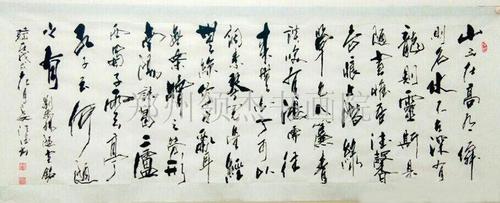 山不在高有僊
則名水不在深有
龍則靈斯是
陋室惟吾德馨
苔痕上階綠
草色入簾青
談笑有鴻儒往
來無白丁可以
調素琴閱金經
無絲竹之亂耳
無案牘之勞形
南陽諸葛廬
西蜀子雲亭
孔子云何陋
之有
劉禹錫陋室銘